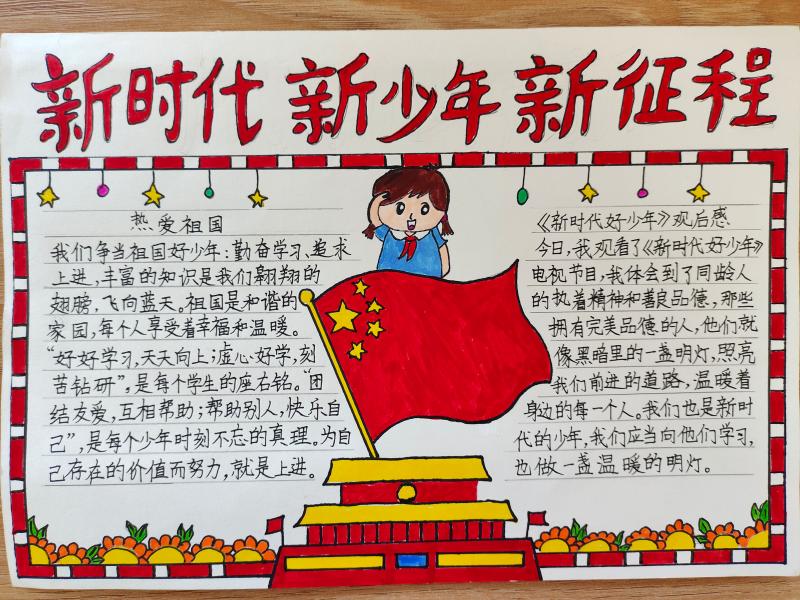 新时代 新少年 新征程
热爱祖国
我们争当祖国好少年：勤奋学习、追求
上进，丰富的知识是我们翱翔的
翅膀，飞向蓝天。祖国是和谐的
家园，每个人享受着幸福和温暖。
“好好学习，天天向上；虚心好学，刻
苦钻研”，是每个学生的座右铭。“团
结友爱，互相帮助；帮助别人，快乐自
己”，是每个少年时刻不忘的真理。为自
己存在的价值而努力，就是上进。
《新时代好少年》观后感
今日，我观看了《新时代好少年》
电视节目，我体会到了同龄人
的执着精神和善良品德，那些
拥有完美品德的人，他们就
像黑暗里的一盏明灯，照亮
我们前进的道路，温暖着
身边的每一个人。我们也是新时
代的少年，我们应当向他们学习，
也做一盏温暖的明灯。